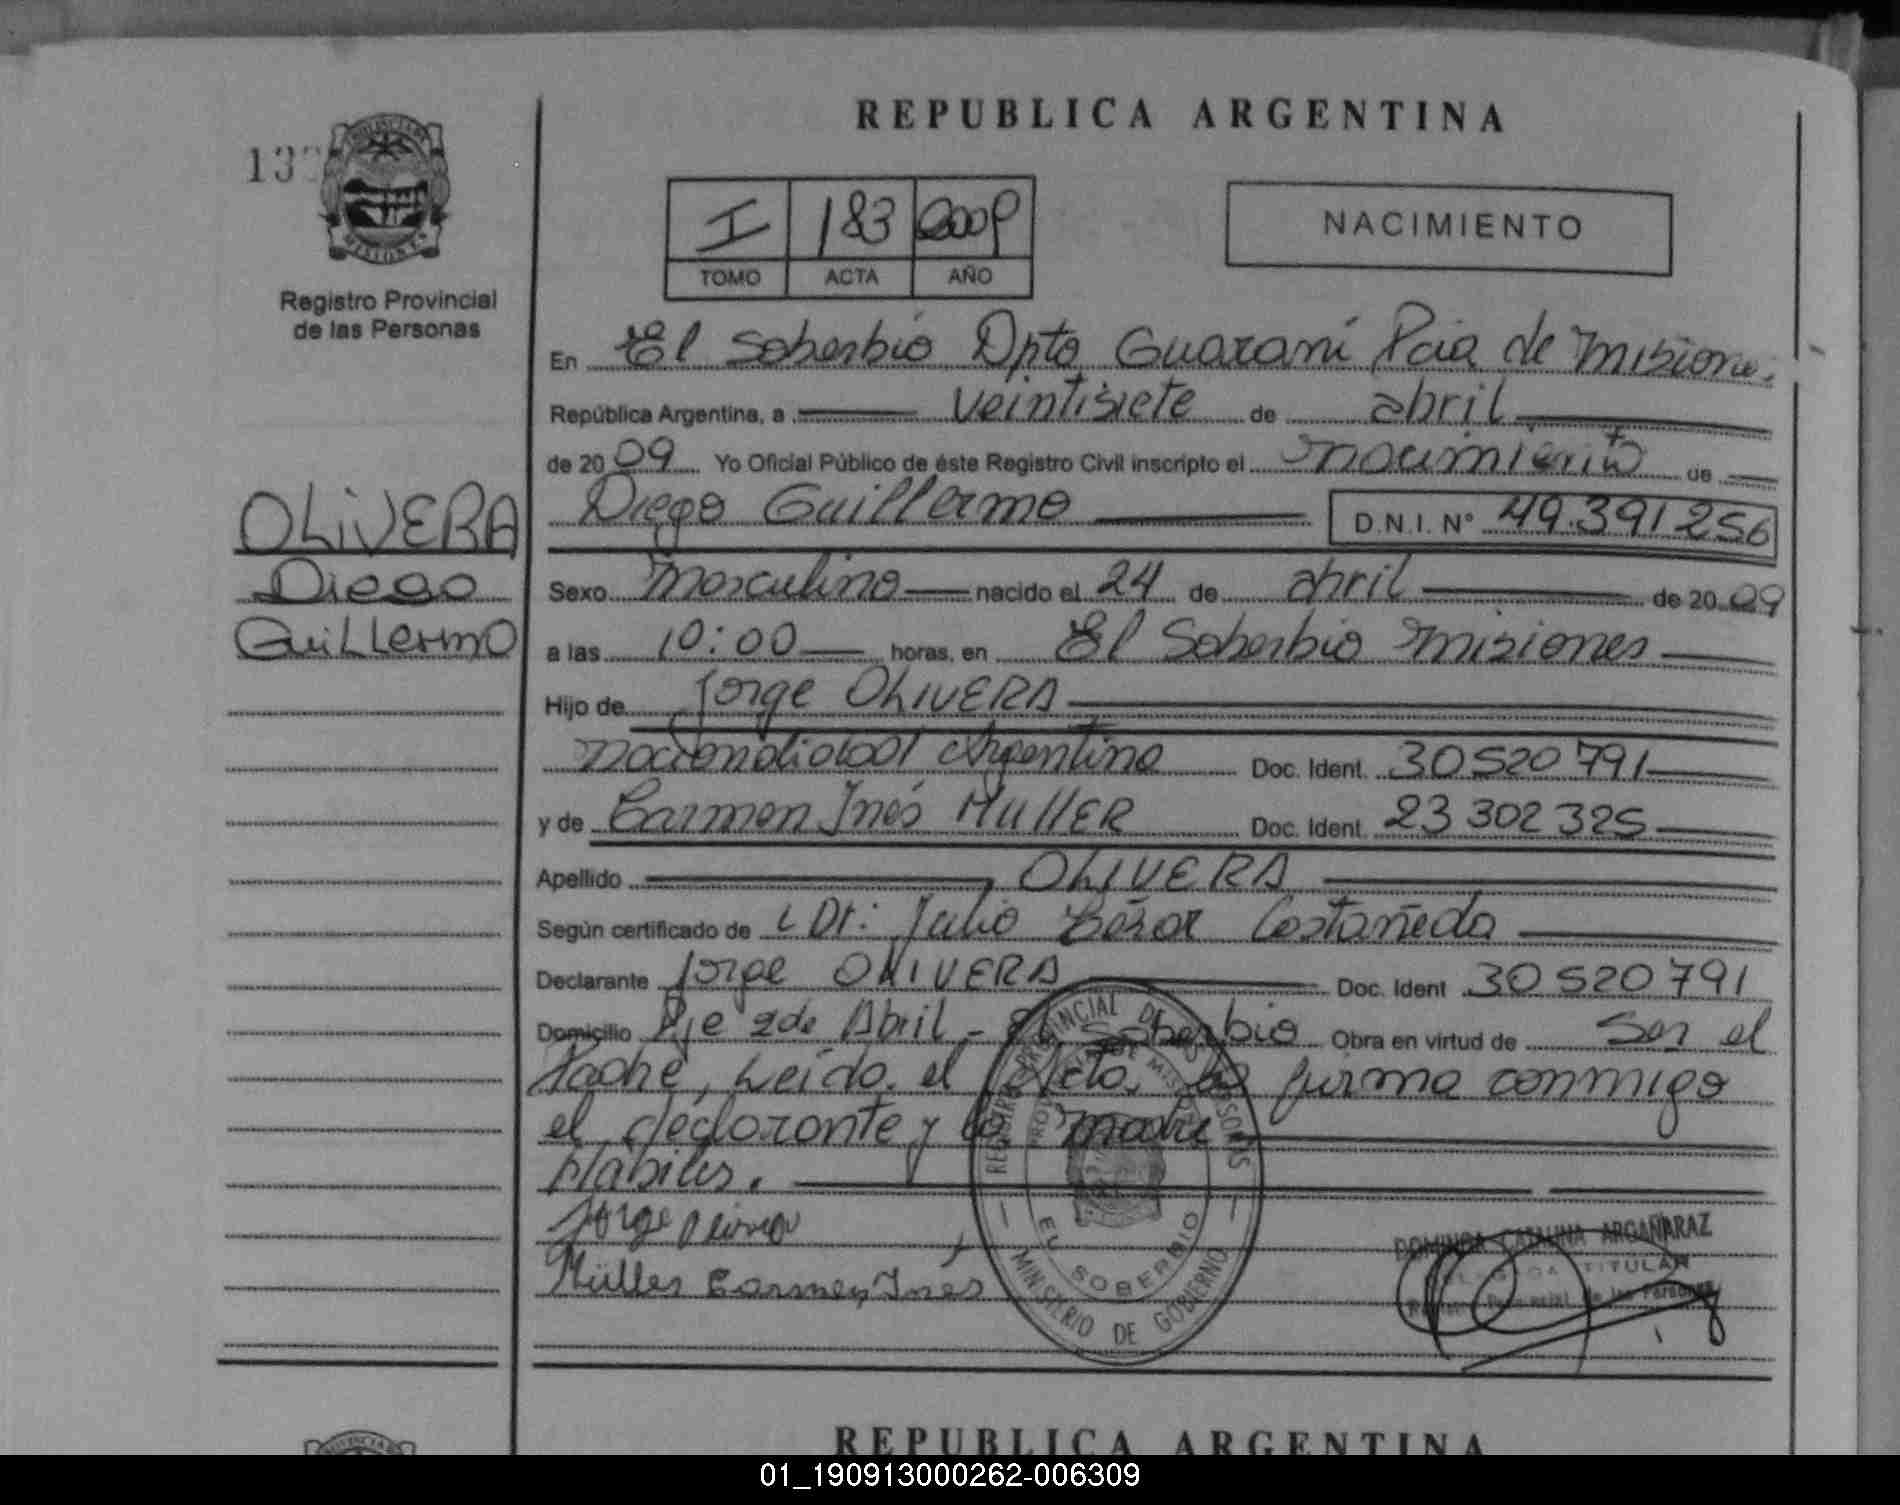 REPUBLICA ARGENTINA
13
PROVINCIA DE
MISIONES
Registro Provincial
de las Personas
I 183 2009
TOMO ACTA AÑO
NACIMIENTO
En El Soberbio Dpto Guaraní Pcia de Misiones.
República Argentina, a veintisiete de abril
de 2009 Yo Oficial Público de éste Registro Civil inscripto el nacimiento de
Diego Guillermo D.N.I. N° 49.391256
OLIVERA
Diego
Guillermo
Sexo Masculino nacido el 24 de abril de 2009
a las 10:00 horas, en El Soberbio Misiones
Hijo de Jorge OLIVERA
nacionalidad Argentina Doc. Ident. 30520791
y de Carmen Inés MULLER Doc. Ident. 23302325
Apellido OLIVERA
Según certificado de Dr: Julio Cézar Castañeda
Declarante Jorge OLIVERA Doc. Ident 30520791
Domicilio Pje 2 de Abril - El Soberbio Obra en virtud de Ser el
Padre, Leído el Acta, la firma conmigo
el declarante y la madre
Habiles.
Jorge Olivera
Müller Carmen Inés
REGISTRO PROVINCIAL DE LAS PERSONAS
PROVINCIA DE MISIONES
EL SOBERBIO
MINISTERIO DE GOBIERNO
DOMINGA CATALINA ARGAÑARAZ
DELEGADA TITULAR
Registro Provincial de las Personas
PROVINCIA
REPUBLICA ARGENTINA
01_190913000262-006309